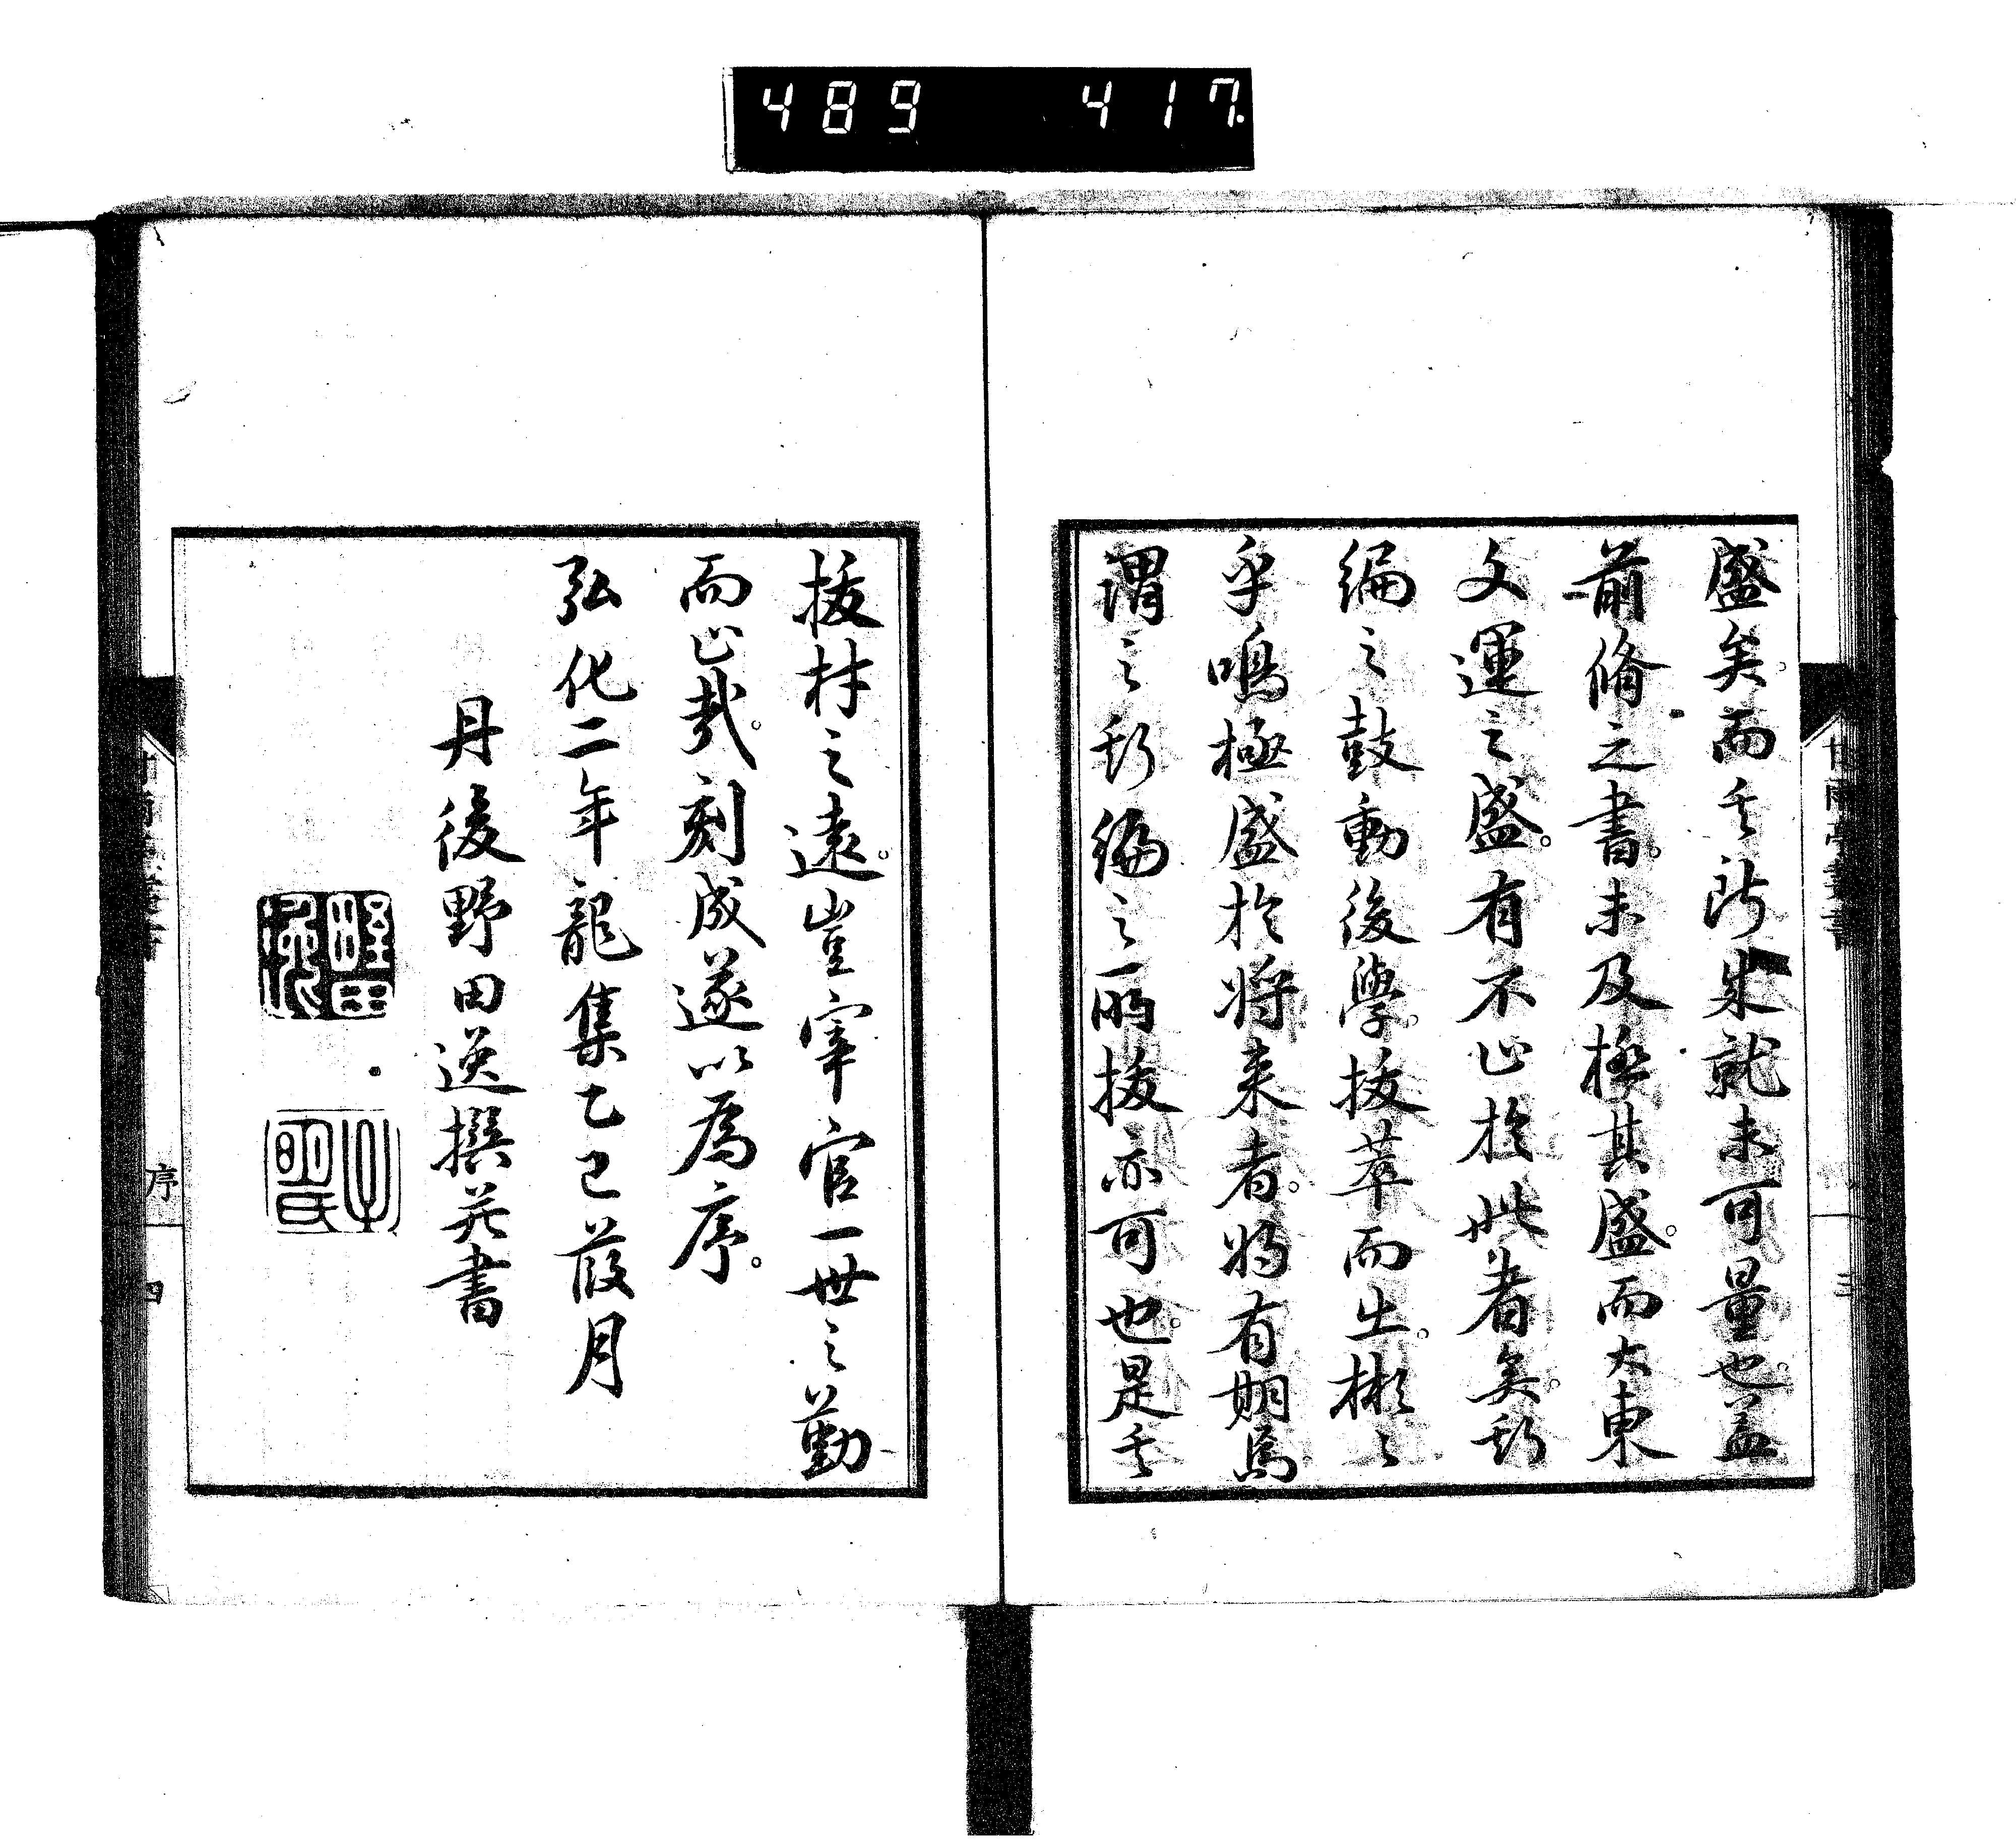 489 417.
盛矣。而其所成就未可量也。蓋
前脩之書。未及極其盛。而大東
文運之盛。有不止於此者矣。斯
編之鼓動後學。拔萃而出。彬〻
乎鳴極盛於將來者。將有期焉
謂之斯編之所拔亦可也。是其
拔材之遠。豈宰官一世之勤
而止哉。刻成遂以為序。
弘化二年龍集乙巳葭月
丹後野田逸撰并書
序
四
三